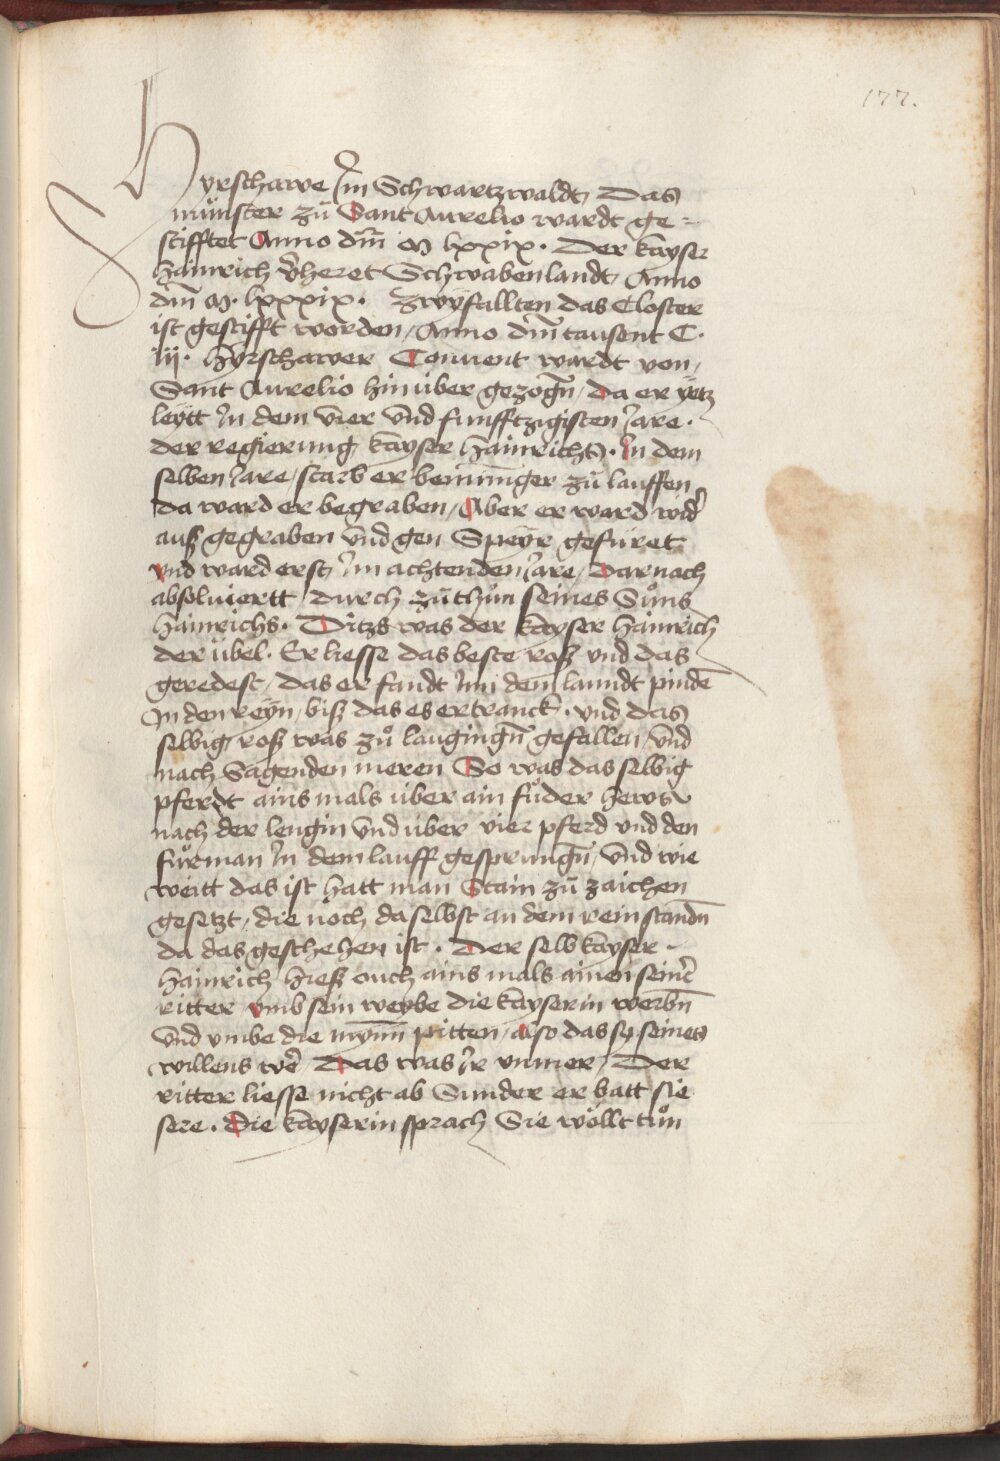 177.
Hyrschawe Im Schwartzwaldt Das
münster zů Sant Aurelio wardt ge=
stifftet Anno dm̄ M lxxix. Der kayser
hainrich v̄heret Schwabenlandt, Anno
dm̄ M. lxxxix. Zwyfallten das Closter
ist gestifft worden, Anno dm̄ tausent C.
iij. Hyrschawer Conuent wardt von,
Sant Aurelio hinüber gezogn̄, da er yetz
leytt In dem vier vnd funfftzigisten Jare.
der regierung kayser hainrichs. In dem
selben Jare, starb er benninger zů lauffen
da ward er begraben, Aber er ward wid̄
auß gegraben vnd gen Speyr gefüret
vnd ward erst Im achtenden Jare, darnach
absoluiertt, durch zůthůn seines Sůns
hainrichs. Ditzs was der kayser hainrich
der übel. Er liesse das beste roß vnd das
geredest, das er fandt Inn dem lanndt pindē
In den reyn, biß das es ertranck. vnd das
selbig roß was zů laugingn̄ gefallen, vnd
nach Sagenden meren So was das selbig
pferdt ains mals über ain fůder hews
nach der lengin vnd über vier pferd vnd den
fůrman In dem lauff gesprungn̄, vnd wie
weitt das ist hatt man Stain zů zaichen
gesetzt, die noch daselbst an dem rein standn̄
da das geschehen ist. Der selb kayser
hainrich hieß ouch ains mals ainen seinē
ritter vmb sein weybe die kayserin werbn̄
vnd vmbe die mynn pitten, also das sy seines
willens wē Das was Ir vnmer, Der
ritter liesse nicht ab Sunder er batt sie
sere. Die kayserin sprach Sie wöllt tůn